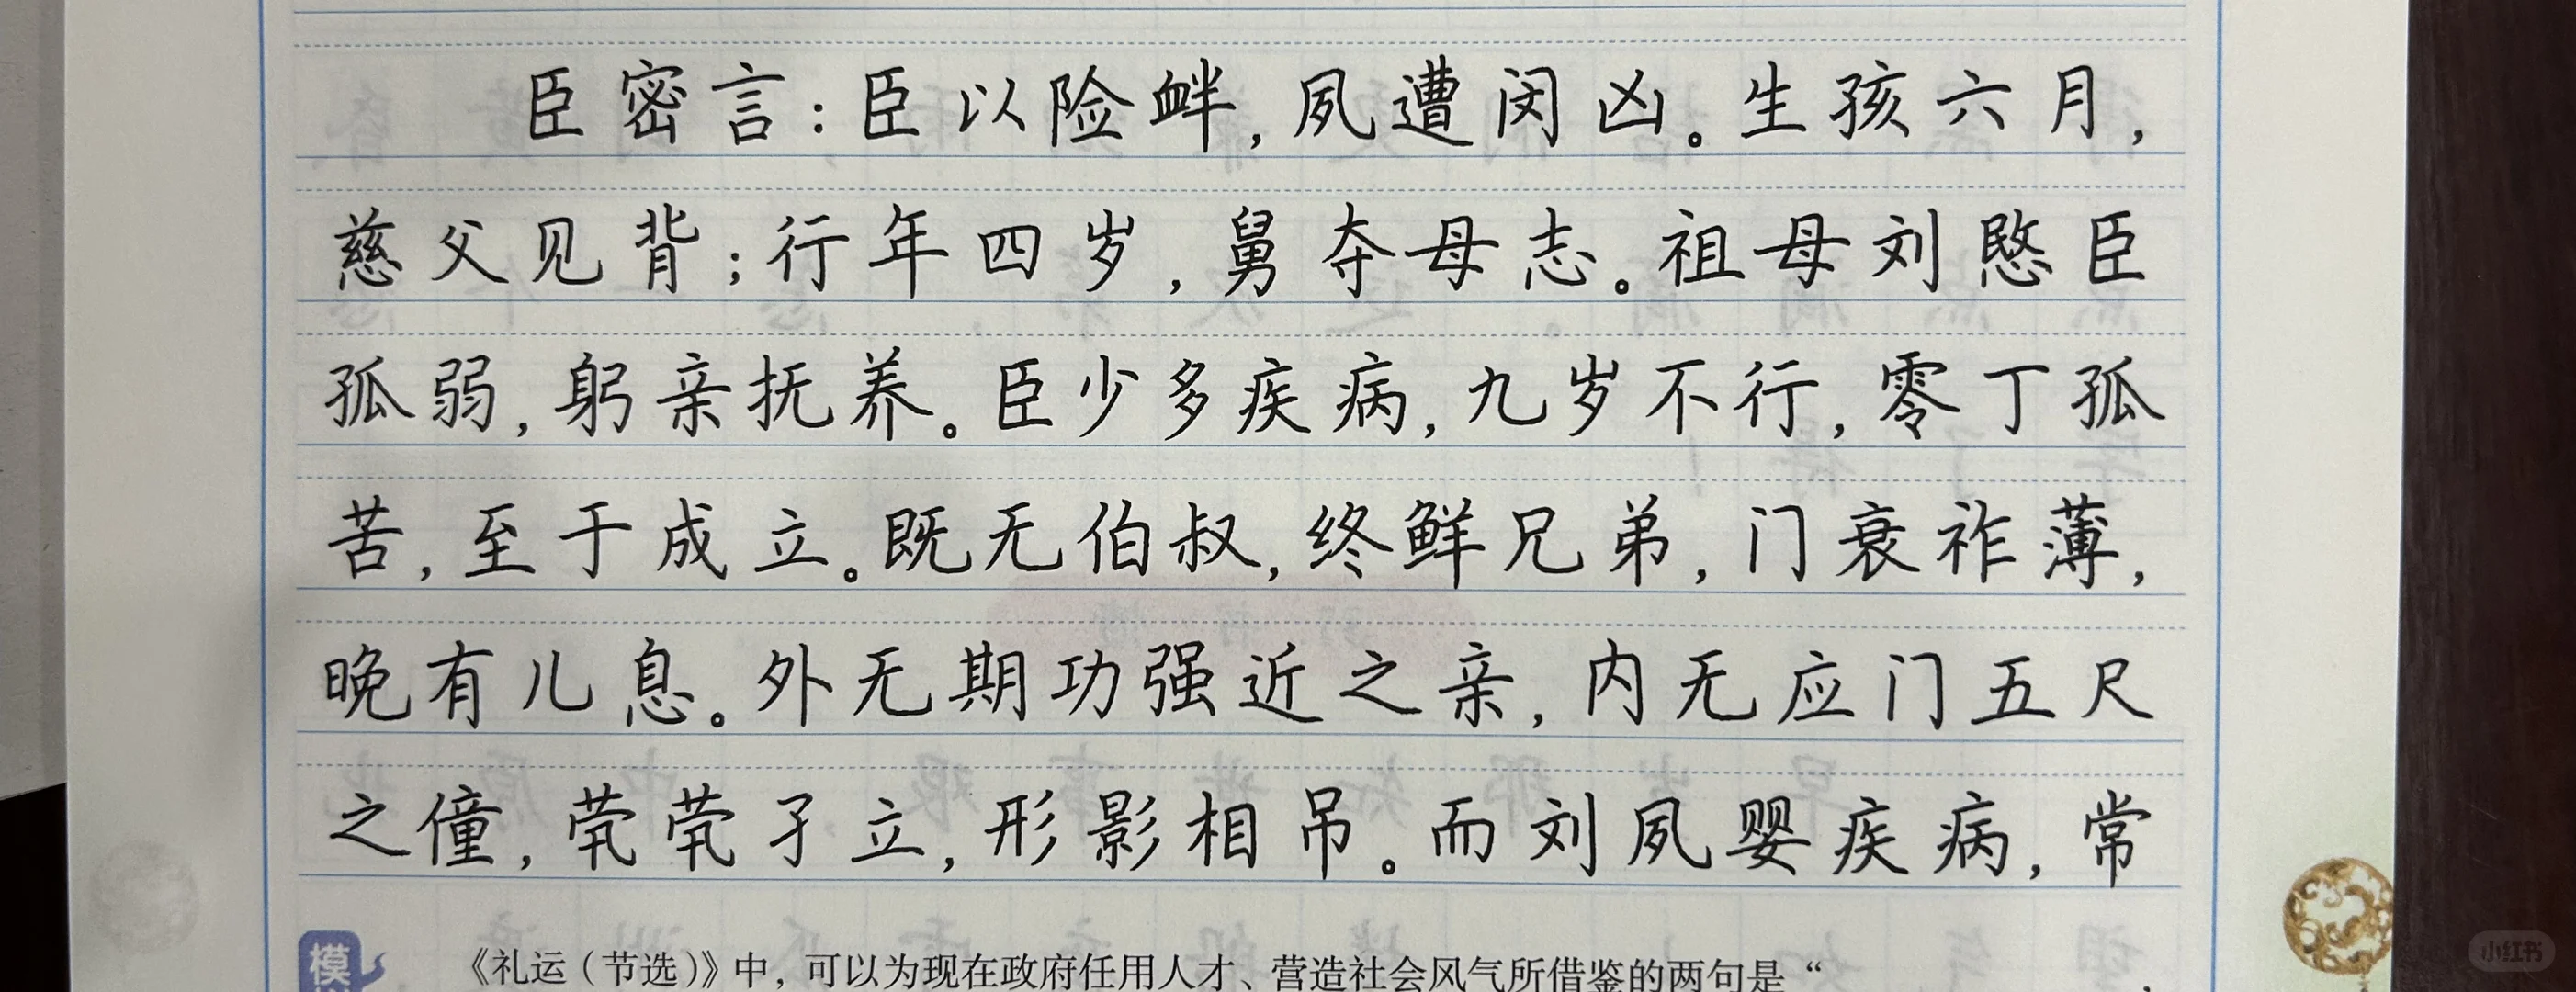 臣密言：臣以险衅，夙遭闵凶。生孩六月，
慈父见背；行年四岁，舅夺母志。祖母刘愍臣
孤弱，躬亲抚养。臣少多疾病，九岁不行，零丁孤
苦，至于成立。既无伯叔，终鲜兄弟，门衰祚薄，
晚有儿息。外无期功强近之亲，内无应门五尺
之僮，茕茕孑立，形影相吊。而刘夙婴疾病，常
模
《礼运（节选）》中，可以为现在政府任用人才、营造社会风气所借鉴的两句是“
小红书